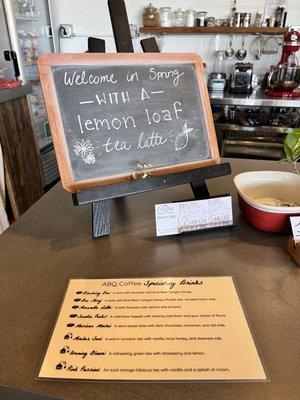 Welcome in Spring
WITH A
lemon loaf
tea latte
ABQ Coffee Specialty Drinks
A latte with lavender and local
A latte with local
Amaretto Latte: A latte flavored with vanilla and almond.
A cold brew topped with creamy cold foam and your choice of flavor.
Mexican Mocha: A semi-sweet latte with dark chocolate, cinnamon, and red chile.
Amber Sun: A warm turmeric tea with vanilla, local honey, and steamed milk.
Evening Bloom: A refreshing green tea with strawberry and lemon.
Pink Passion: An iced orange-hibiscus tea with vanilla and a splash of cream.